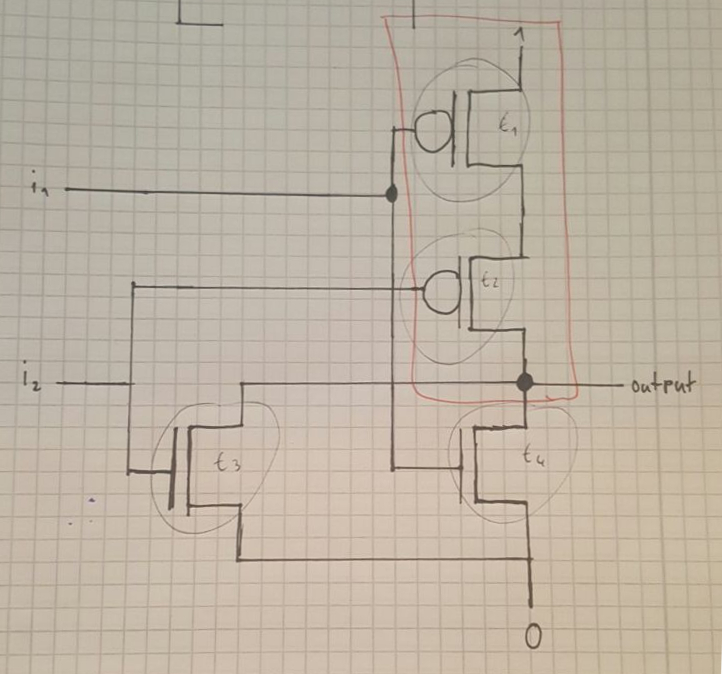 1
t1
i1
t2
i2
output
t3
t4
0